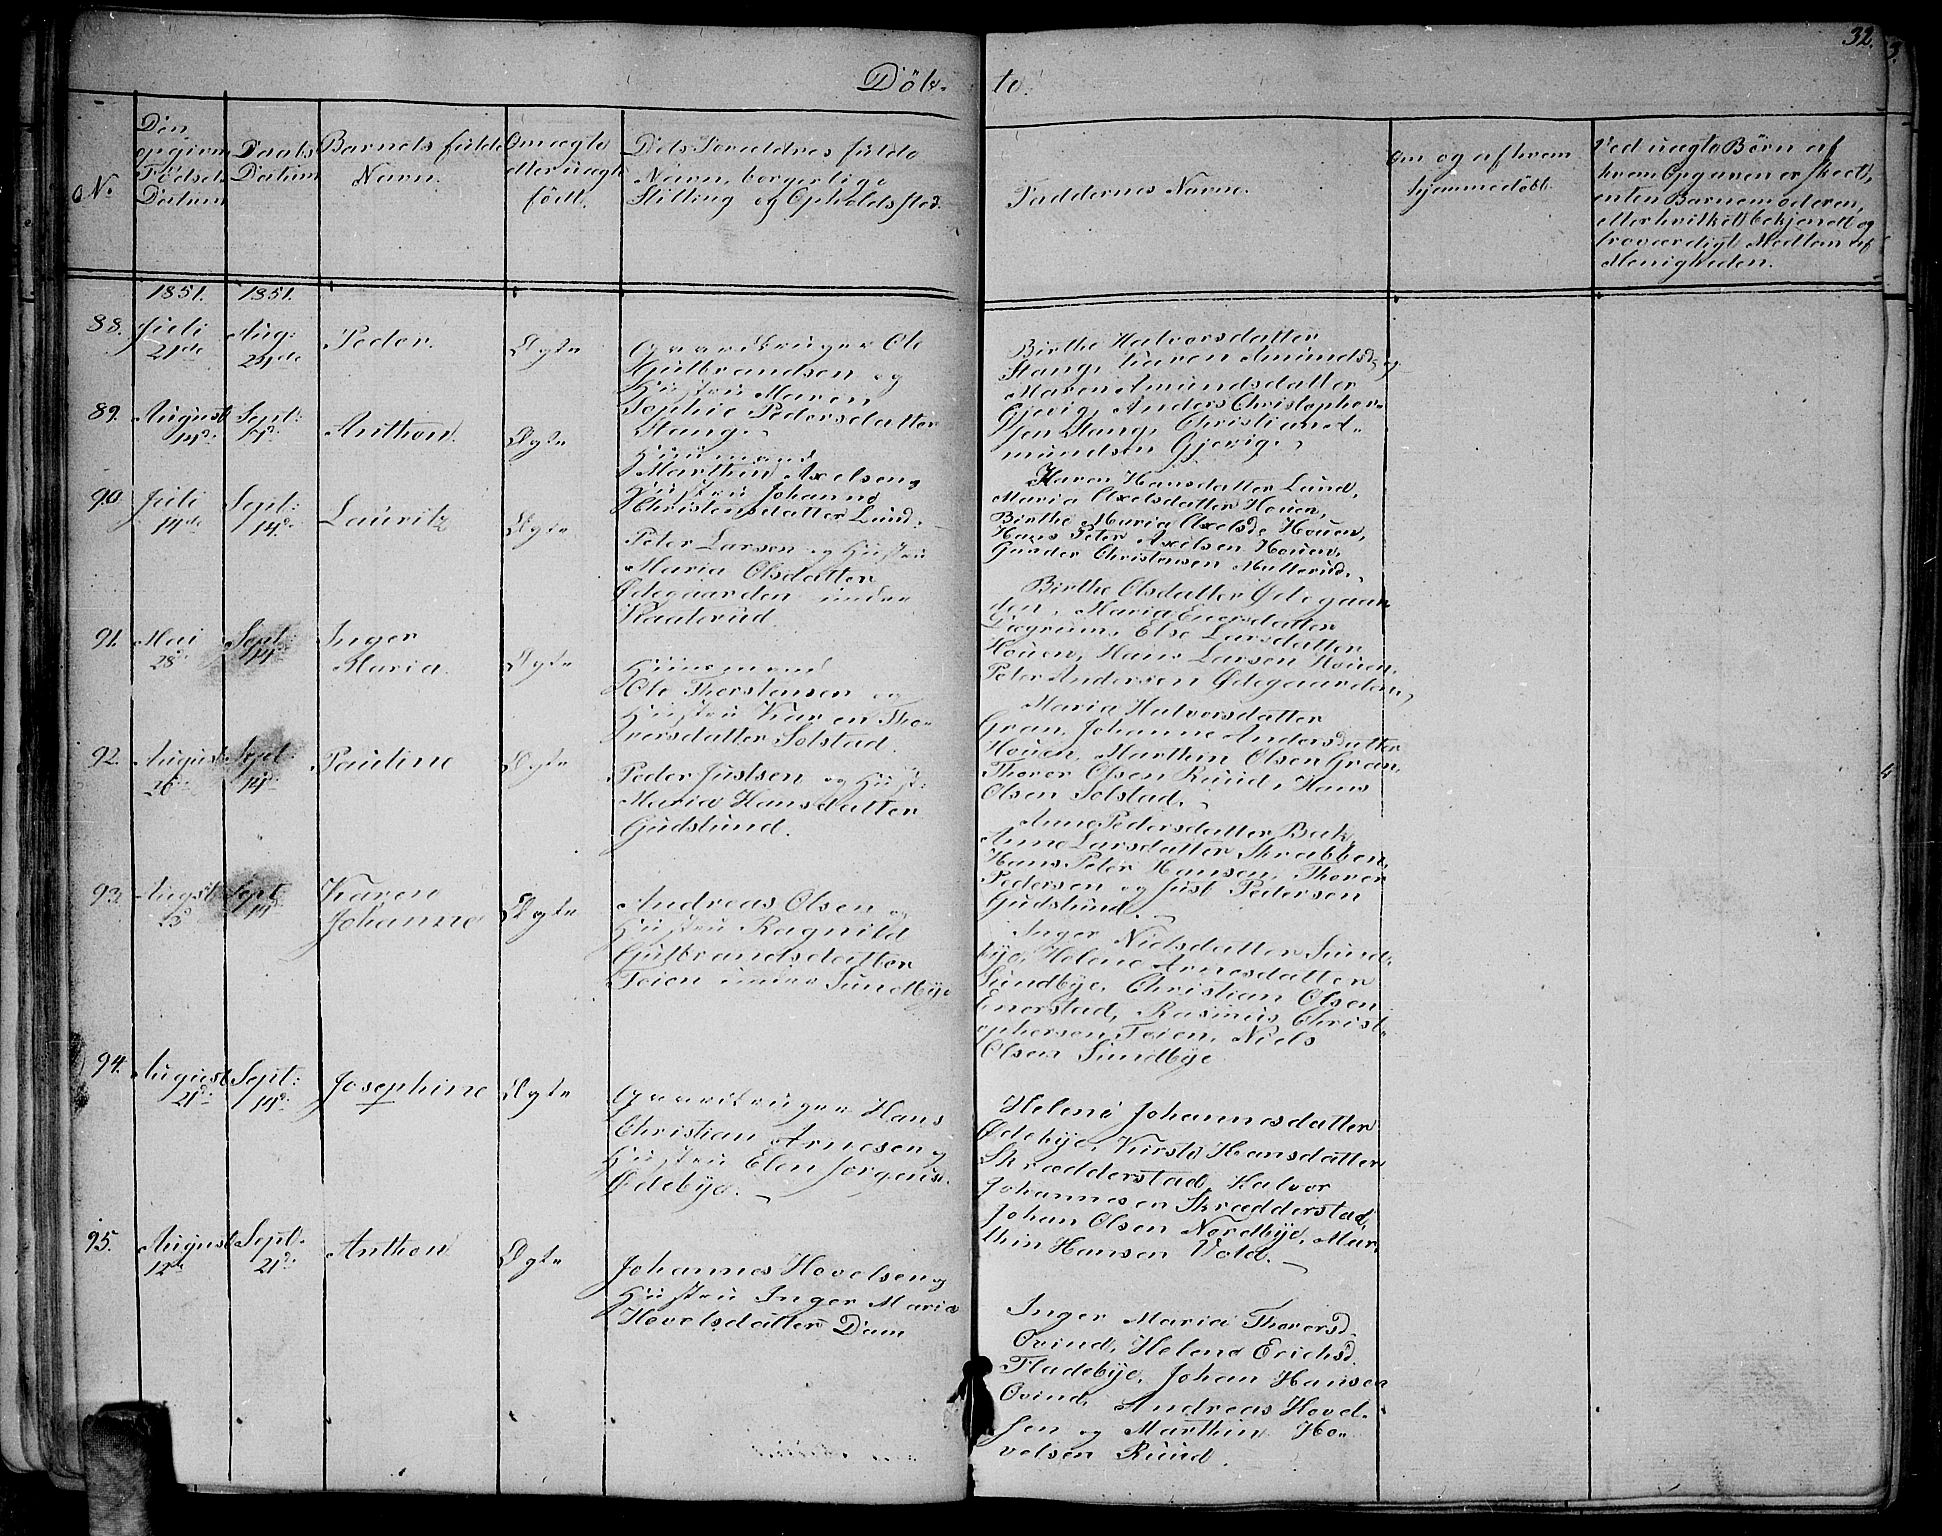 32.
Döb-
te.
No
Den
opgivne
Födsels
Datum
Daabs
Datum
Barnets fulde
Navn.
Om ægte
eller uægte
födt.
Dets Forældres fulde
Navn, borgerlige
Stilling og Opholdssted.
Faddernes Navne.
Om og af hvem
hjemmedöbt.
Ved uægte Börn af
hvem Opgaven er skeet,
enten Barnemoderen,
eller hvilket bekjendt og
troværdigt Medlem af
Menigheden.
1851.
1851.
88.
Juli
21de
Aug:
Peder.
Ægte
Gaardbruger Ole
Gulbrandsen og
Hustru Maren
Sophie Pedersdatter
Stang.
Birthe Halvorsdatter
Stang, Karen Amundsd. og
Maren Amundsdatter
Gjevig, Anders Christopher-
sen Stang, Christian A-
mundsen Gjevig.
89.
August
Sept:
Anthon.
Ægte
Huusmand
Marthin Axelsen og
Hustru Johanne
Christensdatter Lund.
Karen Hansdatter Lund,
Maria Axelsdatter Houen,
Birthe Maria Axelsd. Houen,
Hans Peter Axelsen Houen,
Gunder Christensen Mutterud.
90.
Juli
14de
Sept:
14de
Lauritz
Ægte
Peter Larsen og Hustru
Maria Olsdatter
Ödegaarden under
Kaaterud.
Birthe Olsdatter Ödegaar-
den, Maria Enersdatter
Lögrum, Else Larsdatter
Houen, Hans Larsen Houen,
Peter Andersen Ödegaarden.
91.
Mai
28de
Sept:
14de
Inger
Maria.
Ægte
Huusmand
Ole Thorstensen og
Hustru Karen Tho-
versdatter Solstad.
Maria Halvorsdatter
Gran, Johanne Andersdatter
Houen, Marthin Olsen Gran,
Thorer Olsen Ruud, Hans
Olsen Solstad.
92.
August
26de
Sept:
14de
Pauline
Ægte
Peder Justsen og Hust:
Maria Hansdatter
Gudslund.
Anne Pedersdatter Bak,
Anne Larsdatter Skrabben,
Hans Peter Hansen, Thorer
Pedersen og Just Pedersen
Gudslund.
93.
August
Sept:
14
Karen
Johanne
Ægte
Andreas Olsen og
Hustru Ragnild
Gulbrandsdatter
Teien under Sundbye
Inger Nielsdatter Sund-
bye, Helene Arnesdatter
Sundbye, Christian Olsen
Enerstad, Rasmus Christ-
ophersen Teien, Niels
Olsen Sundbye
94.
August
21de
Sept:
14de
Josephine
Ægte
Gaardbruger Hans
Christian Arnesen og
Hustru Elen Jörgensd.
Ödebye.
Helene Johannesdatter
Ödebye, Kirste Hansdatter
Skrædderstad, Halvor
Johannesen Skrædderstad,
Johan Olsen Nordbye, Mar-
thin Hansen Vold.
95.
August
12te
Sept:
21de
Anthon
Ægte
Johannes Hovelsen og
Hustru Inger Maria
Hovelsdatter Dam
Inger Maria Thorersd.
Ovind, Helene Erichsd.
Fladebye, Johan Hansen
Ovind, Andreas Hovel-
sen og Marthin Ho-
velsen Ruud.